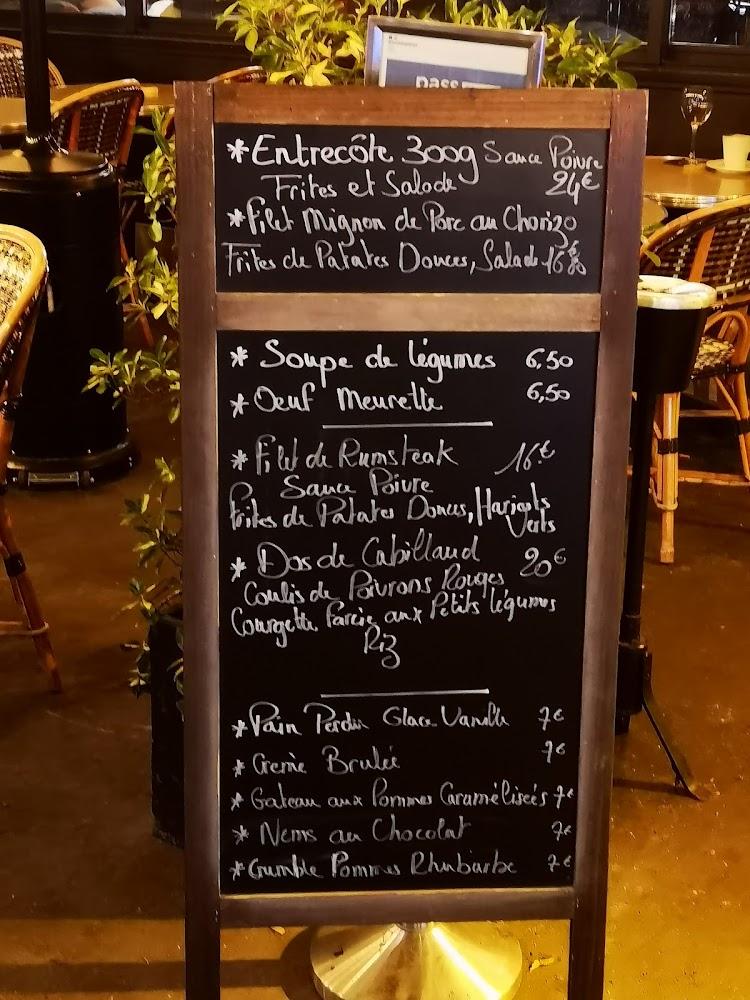 pass
*Entrecôte 300g Sauce Poivre
Frites et Salade 24€
*Filet Mignon de Porc au Chorizo
Frites de Patates Douces, Salade 16€80
* Soupe de légumes 6,50
* Oeuf Meurette 6,50
* Filet de Rumsteak 16€
Sauce Poivre
Frites de Patates Douces, Haricots
Verts
* Dos de Cabillaud 20€
Coulis de Poivrons Rouges
Courgette Farcie aux Petits légumes
Riz
* Pain Perdu Glace Vanille 7€
* Creme Brulée 7€
* Gateau aux Pommes Caramélisées 7€
* Nems au Chocolat 7€
* Crumble Pommes Rhubarbe 7€